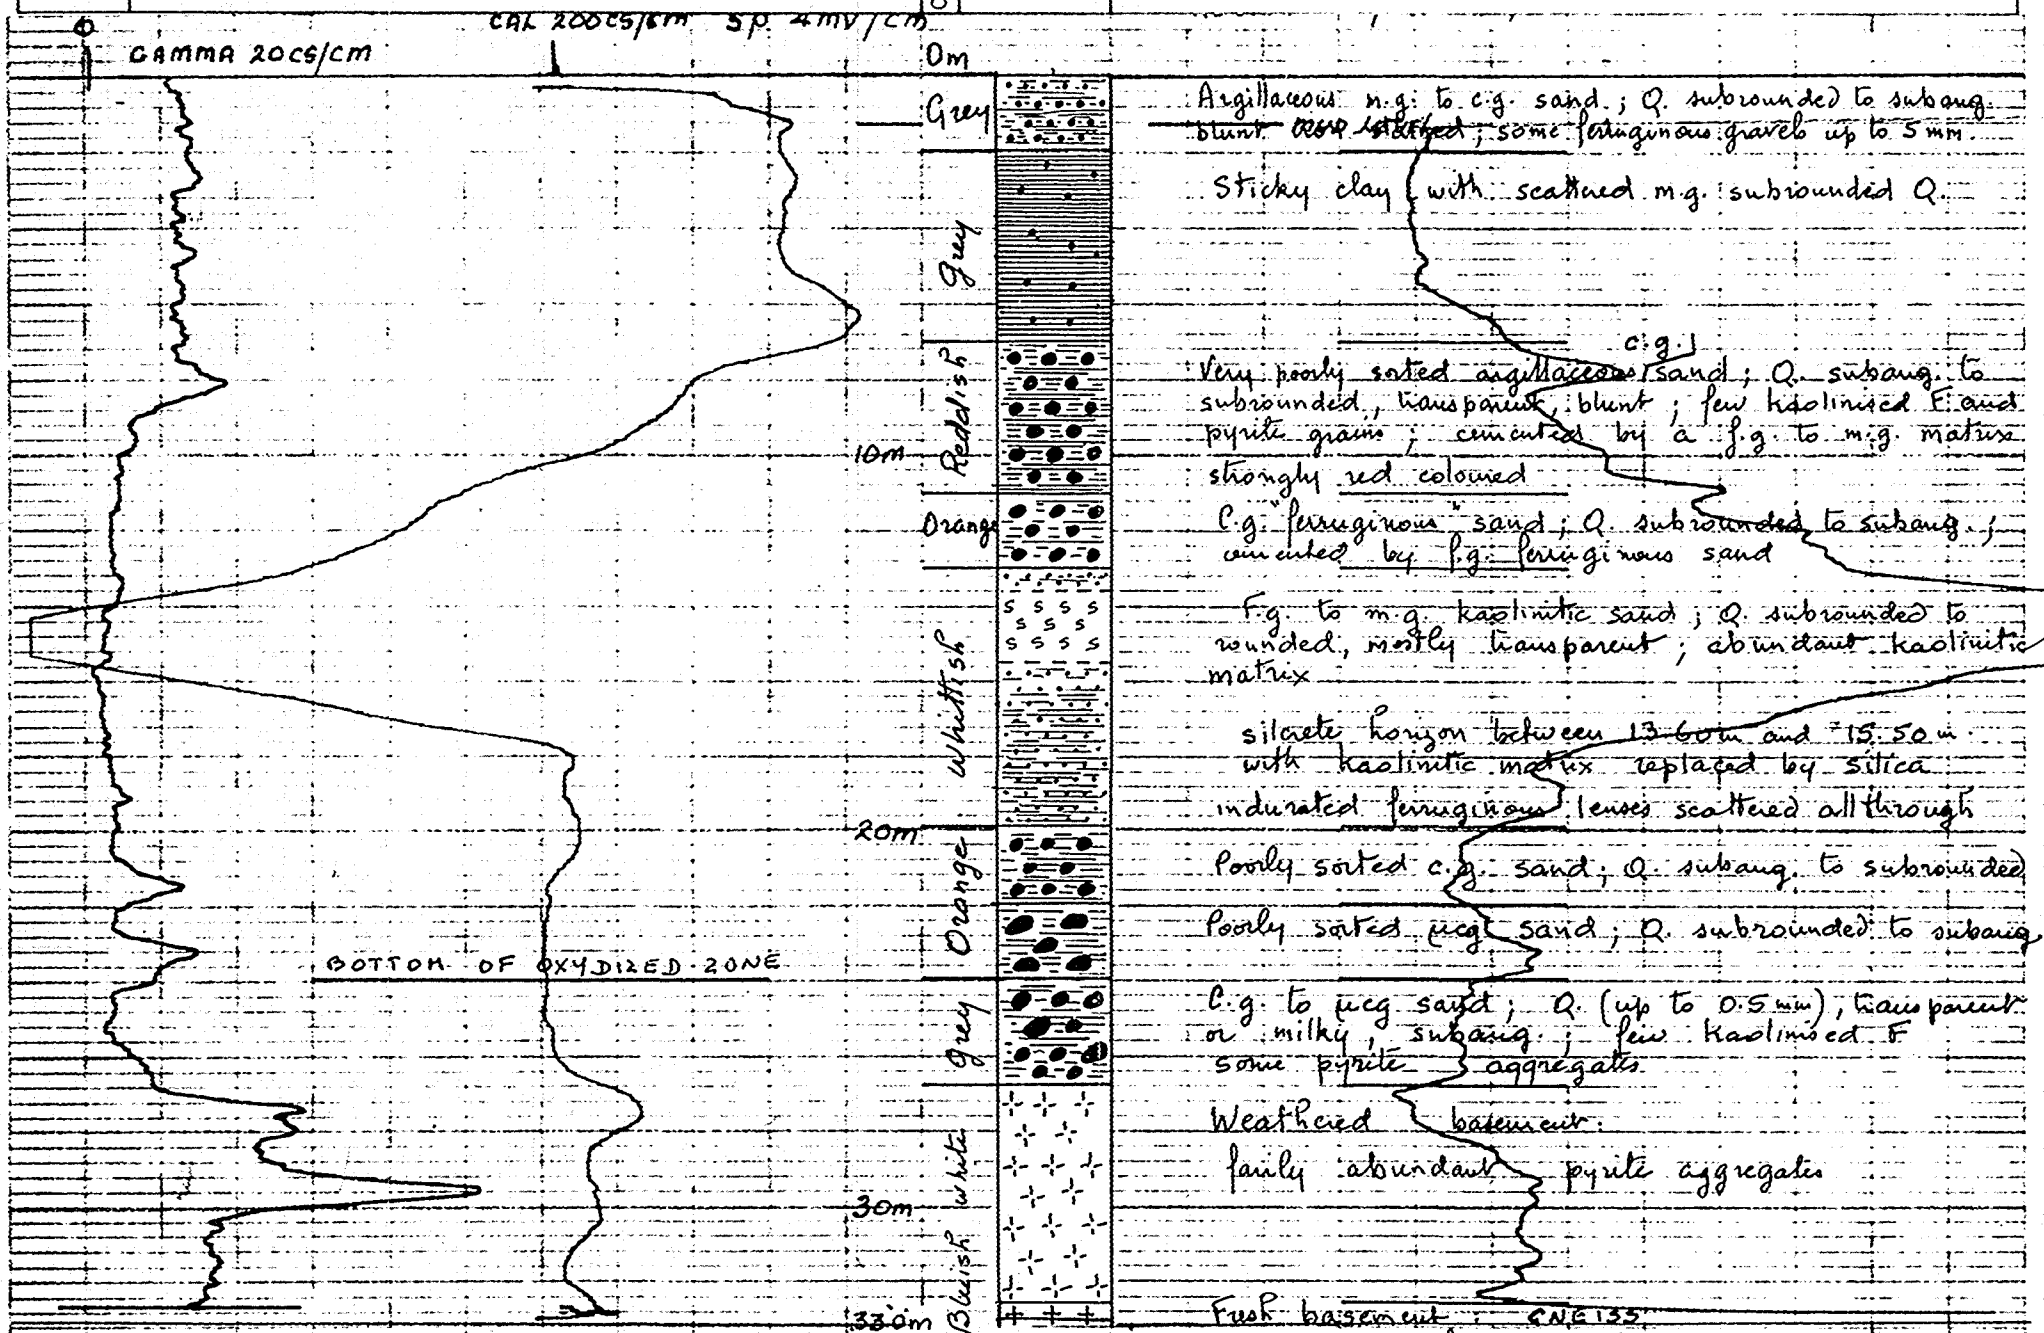 CAL 200CS/cm SP. 4mV/cm
GAMMA 20CS/CM
0m
Grey
Argillaceous m.g. to c.g. sand; Q. subrounded to subang.
blunt; some ferruginous gravels up to 5 mm.
Grey
Sticky clay with scattered m.g. subrounded Q.
Reddish
c.g.
Very poorly sorted argillaceous sand; Q. subang. to
subrounded, transparent, blunt; few kaolinised F and
pyrite grains; cemented by a f.g. to m.g. matrix
10m
strongly red coloured
Orange
C.g. "ferruginous" sand; Q. subrounded to subang.;
cemented by f.g. ferruginous sand
Whitish
F.g. to m.g. kaolinitic sand; Q. subrounded to
rounded, mostly transparent; abundant kaolinitic
matrix
silcrete horizon between 13.60m and 15.50m
with kaolinitic matrix replaced by silica
indurated ferruginous lenses scattered all through
20m
Orange
Poorly sorted c.g. sand; Q. subang. to subrounded
Poorly sorted µcg sand; Q. subrounded to subang
BOTTOM OF OXYDIZED ZONE
Grey
C.g. to µcg sand; Q. (up to 0.5 mm), transparent
or milky, subang.; few kaolinised F
some pyrite aggregates
Bluish white
Weathered basement.
fairly abundant pyrite aggregates
30m
33.0m
Fresh basement: CNE135